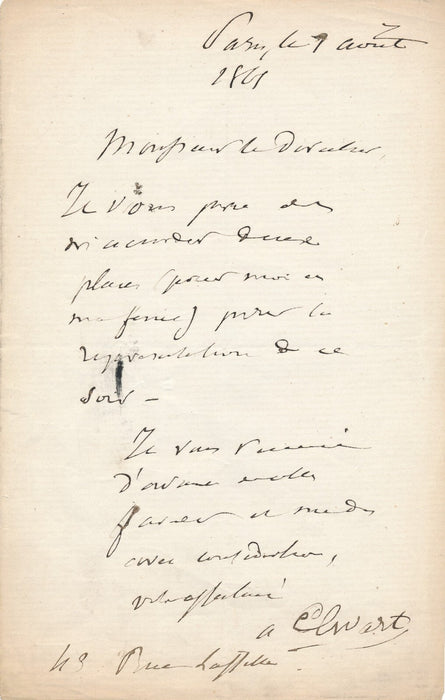 Paris, le 9 août
1861
Monsieur le Directeur,
Je vous prie de
m'accorder deux
places (pour moi et
ma femme) pour la
représentation de ce
soir —
Je vous remercie
d'avance
faveur et suis
avec considération,
votre affectionné
a Elwart
43 Rue Laffitte